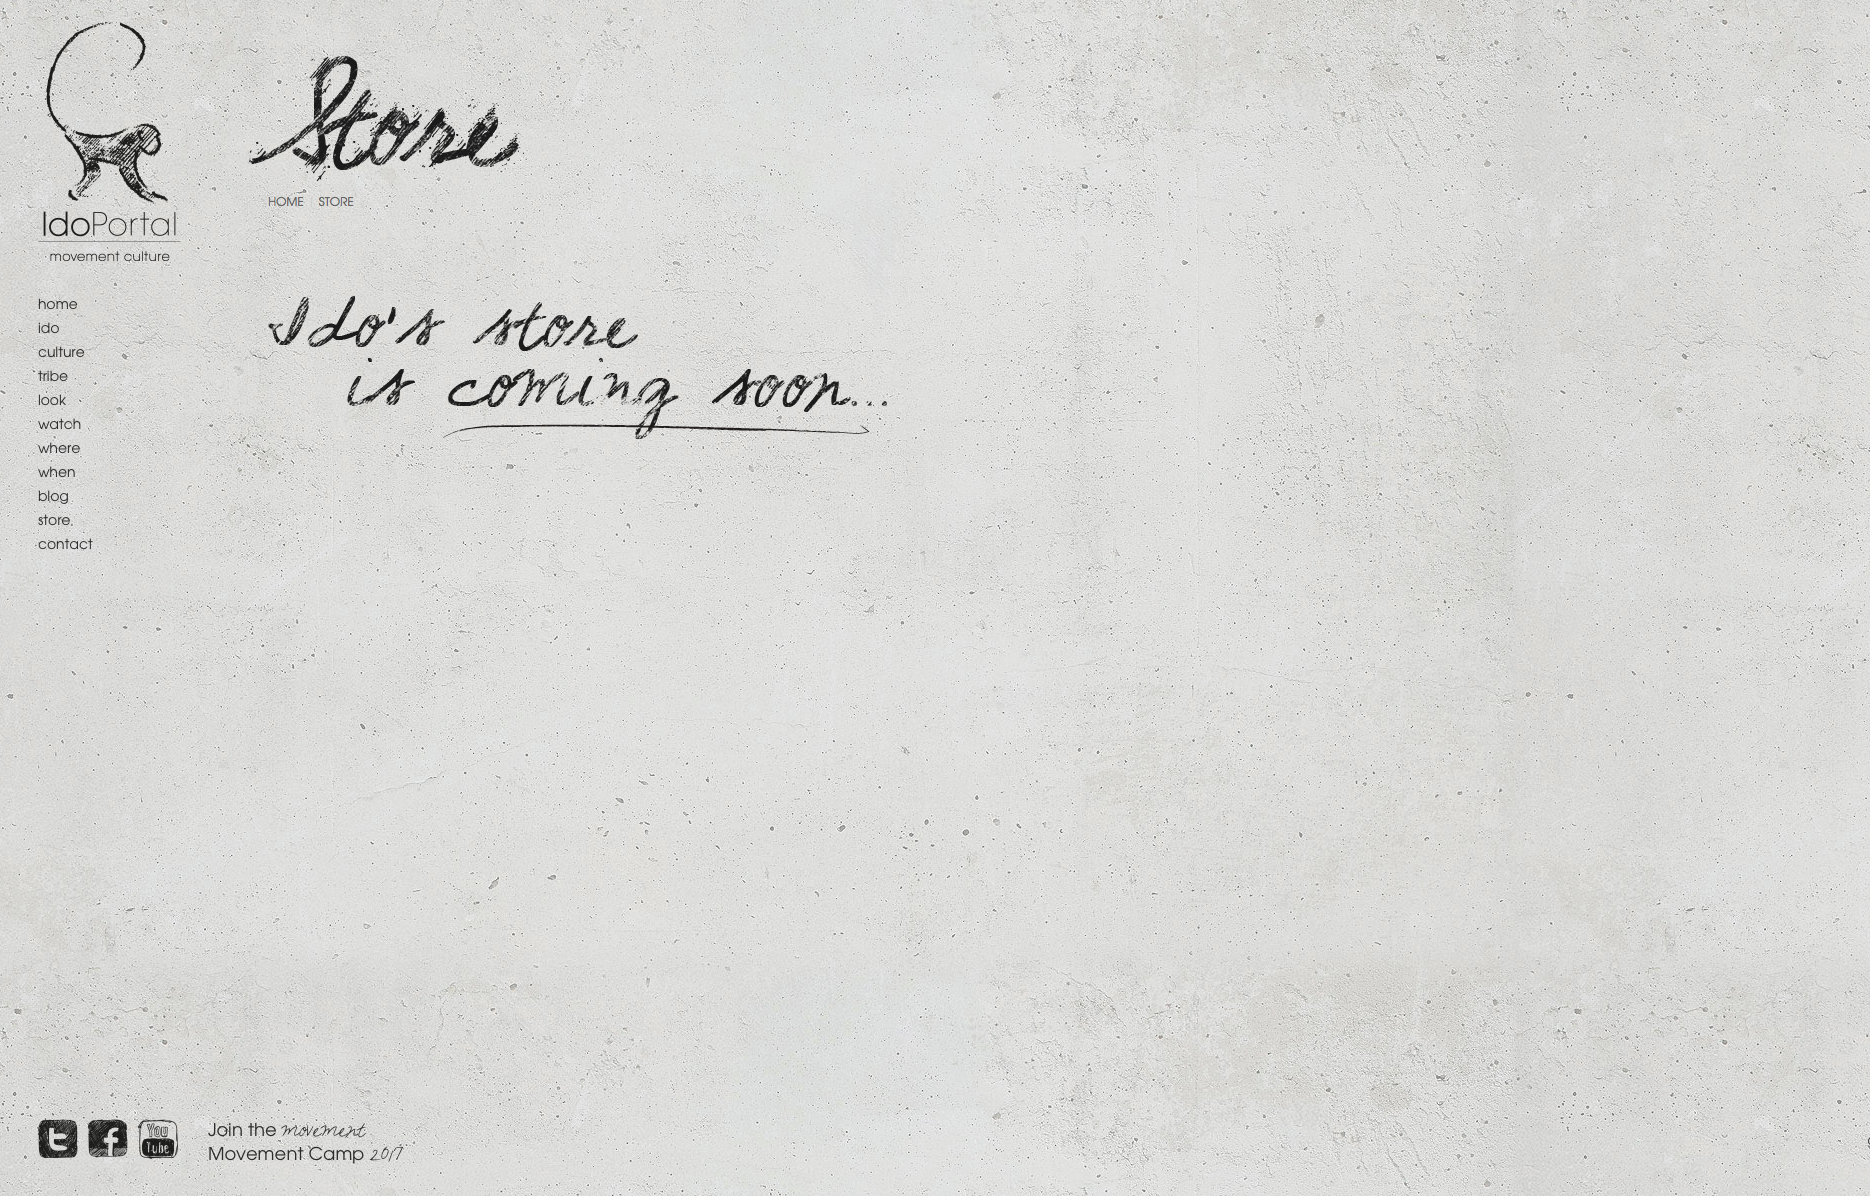 Store
IdoPortal
movement culture
HOME STORE
home
ido
culture
tribe
look
watch
where
when
blog
store.
contact
Ido's store
is coming soon...
You
Tube
Join the movement
Movement Camp 2017